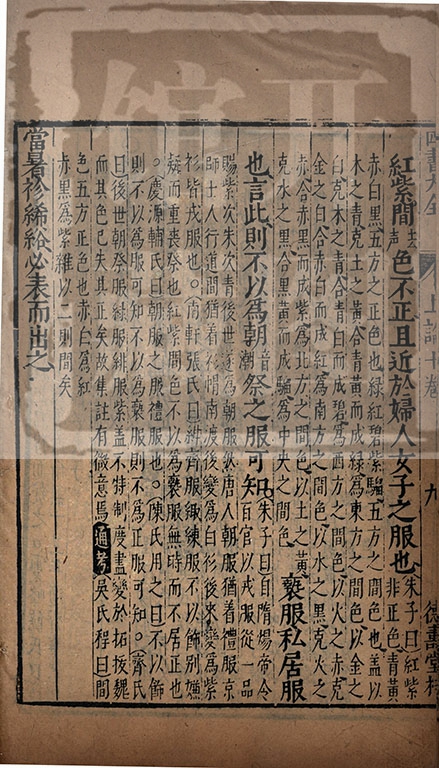 四書大全 上論十卷 九 德壽堂梓
紅紫間去聲色不正且近於婦人女子之服也朱子曰紅紫非正色青黃
赤白黑五方之正色也綠紅碧紫騮五方之間色也蓋以
木之青克土之黃合青黃而成綠為東方之間色以金之
白克木之青合青白而成碧為西方之間色以火之赤克
金之白合赤白而成紅為南方之間色以水之黑克火之
赤合赤黑而成紫為北方之間色以土之黃
克水之黑合黑黃而成騮為中央之間色
褻服私居服
也言此則不以為朝音潮祭之服可知朱子曰自隋煬帝令百官以戎服從一品
賜紫次朱次青後世遂為朝服然唐人朝服猶着禮服京
師士人行道間猶着衫帽南渡後變為白衫後來變為紫
衫皆戎服也○南軒張氏曰紺齊服緅練服不以飾別嫌
疑而重喪祭也紅紫間色不以為褻服無時而不居正也
○慶源輔氏曰朝服之服禮服也○陳氏用之曰不以飾
則不以為服可知不以為褻服則不為正服可知○齊氏
曰後世朝祭服綠服緋服紫蓋不特制度盡變於拓拔魏
而其色已失其正矣故集註有微意焉通考吳氏程曰間
色五方正色也赤白為紅
赤黑為紫雜以二則間矣
當暑袗絺綌必表而出之